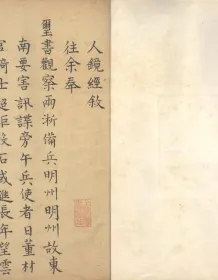 人鏡經敘
往余奉
璽書觀察兩淛備兵明州明州故東
南要害訊諜旁午兵使者日董材
官騎士超距投石或進長年望雲